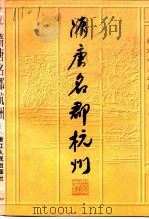 隋唐名郡杭州
隋唐名郡杭州
浙江人民出版社